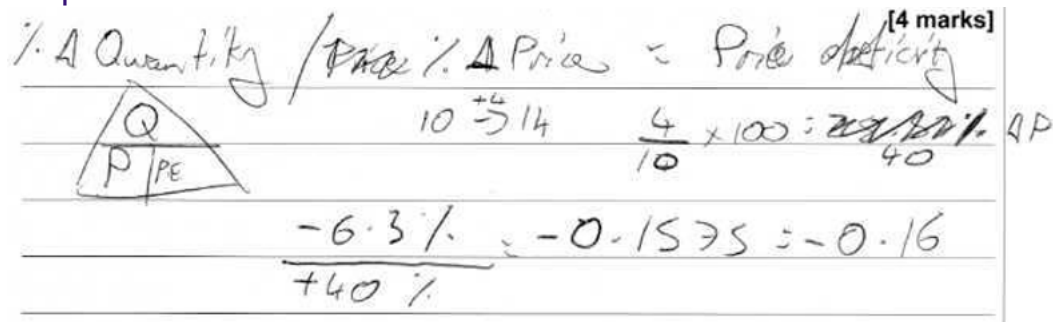 [4 marks]
% Δ Quantity / % Δ Price = Price elasticity
10 +4→ 14 4/10 × 100 = 40 ΔP
Q
P | PE
-6.3% / +40% = -0.1575 = -0.16